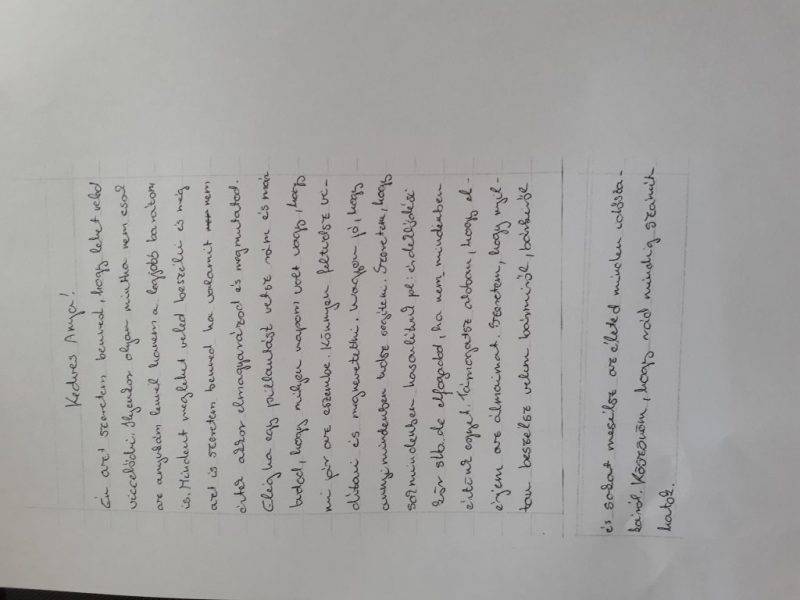 Kedves Anya!
Én azt szeretem benned, hogy lehet veled
viccelődni. Ilyenkor olyan mintha nem csak
az anyukám lennél hanem a legjobb barátom
is. Mindent meglehet veled beszélni és még
azt is szeretem benned ha valamit nem
értek akkor elmagyarázod és megmutatod.
Elég ha egy pillantást vetsz rám és már
tudod, hogy milyen napom volt vagy, hogy
mi jár az eszembe. Könnyen feltudsz vi-
dítani és megnevetetni. Nagyon jó, hogy
annyi mindenben tudsz segíteni. Szeretem, hogy
sok mindenben hasonlítunk pl: érdeklődési
kör stb. de elfogadod, ha nem mindenben
értünk egyet. Támogatsz abban, hogy el-
érjem az álmaimat. Szeretem, hogy nyil-
tan beszélsz velem bármiről, bárkiről
és sokat mesélsz az életed minden időszá-
káról. Köszönöm, hogy rád mindig számít-
hatok.